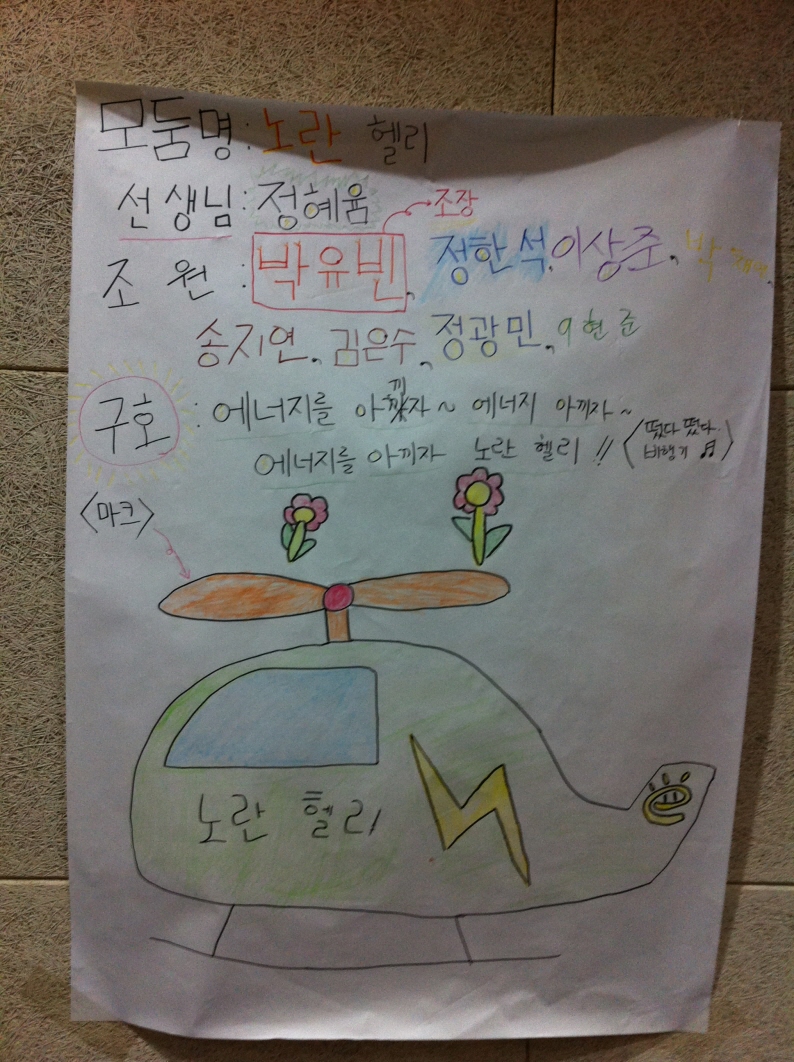 모둠명: 노란 헬리
선생님: 정혜윰
→조장
조 원 : 박유빈, 정한석, 이상준, 박
송지연, 김은수, 정광민, 이현준
구호 : 에너지를 아끼자~ 에너지 아끼자~
에너지를 아끼자 노란 헬리!! <떴다 떴다 비행기 ♬>
<마크>
노란 헬리
e